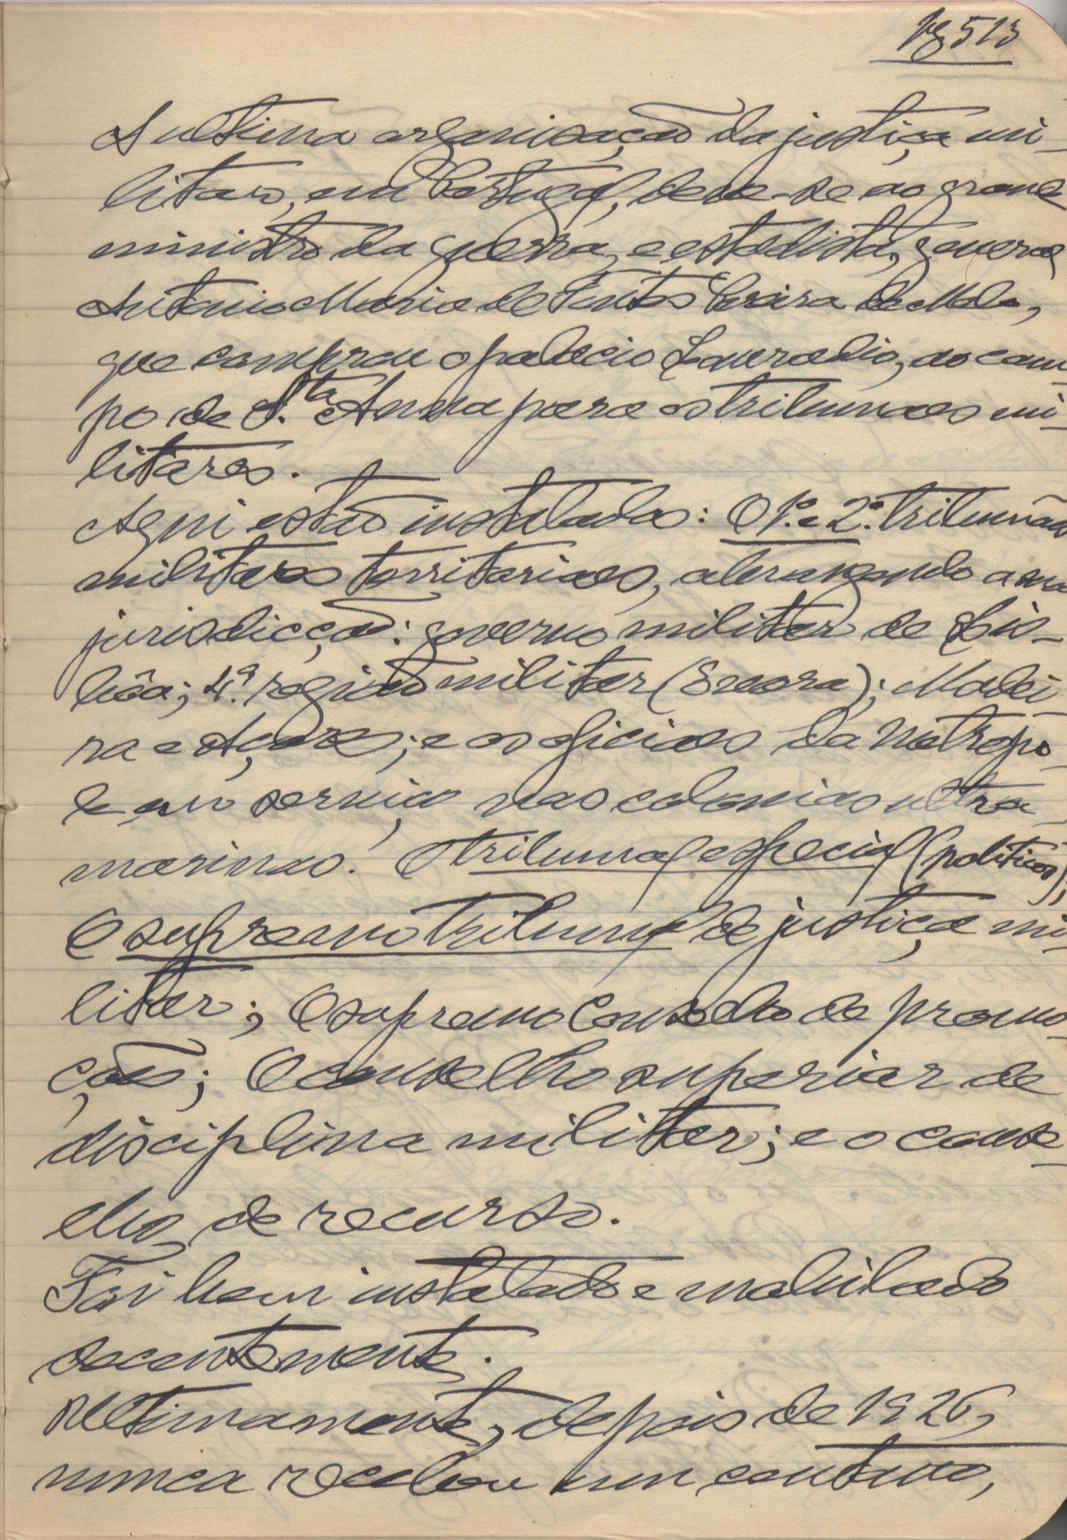 Pg 513
A ultima organisação da justiça mi-
litar, em Portugal, deve-se ao grande
ministro da guerra, e estadista, general
Antonio Maria de Fontes Pereira de Melo,
que comprou o palacio Lavradio, ao cam-
po de S.ta Anna para os tribunaes mi-
litares.
Aqui estão instalados: O 1º. e 2º. tribunaes
militares territoriaes, abrangendo a sua
jurisdicção: governo militar de Lis-
bôa; 4ª. região militar (Evora); Madei-
ra e Açores; e os oficiaes da Metropo-
le em serviço nas colonias ultra-
marinas. O tribunal especial (politico),
O supremo tribunal de justiça mi-
litar; O supremo Conselho de promo-
ções; O conselho superior de
disciplina militar; e o conse-
lho de recurso.
Foi bem instalado e mobilado
decentemente.
Ultimamente, depois de 1926,
nunca recebeu um centavo,